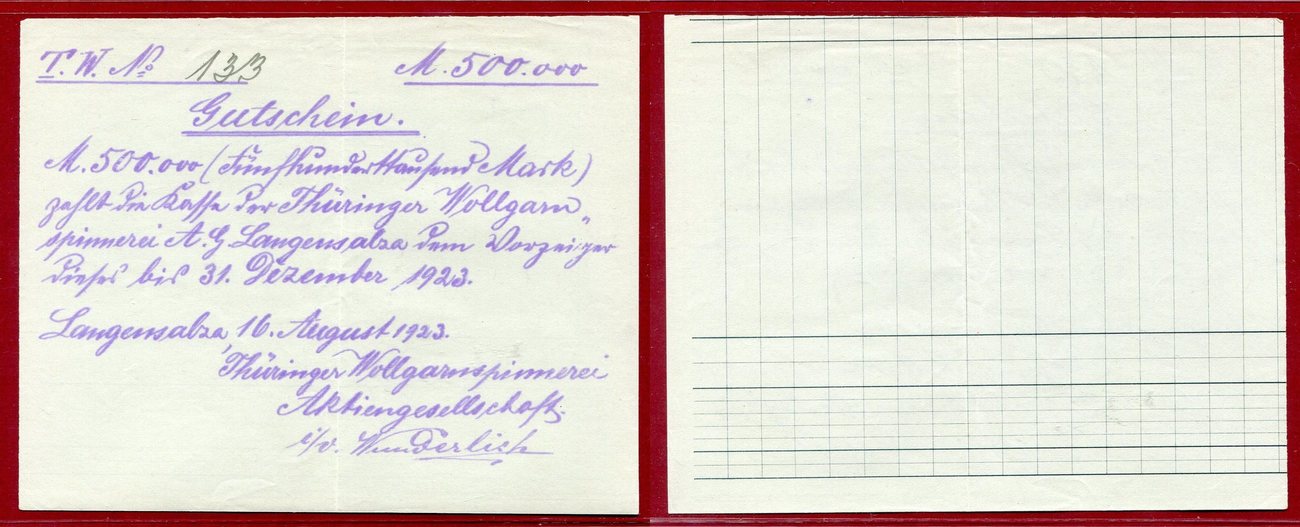 T. W. No 133
M. 500.000
Gutschein.
M. 500.000 (Fünfhunderttausend Mark)
zahlt die Kasse der Thüringer Wollgarn„
spinnerei A.G Langensalza dem Vorzeiger
dieses bis 31. Dezember 1923.
Langensalza, 16. August 1923.
Thüringer Wollgarnspinnerei
Aktiengesellschaft.
i/v. Wunderlich